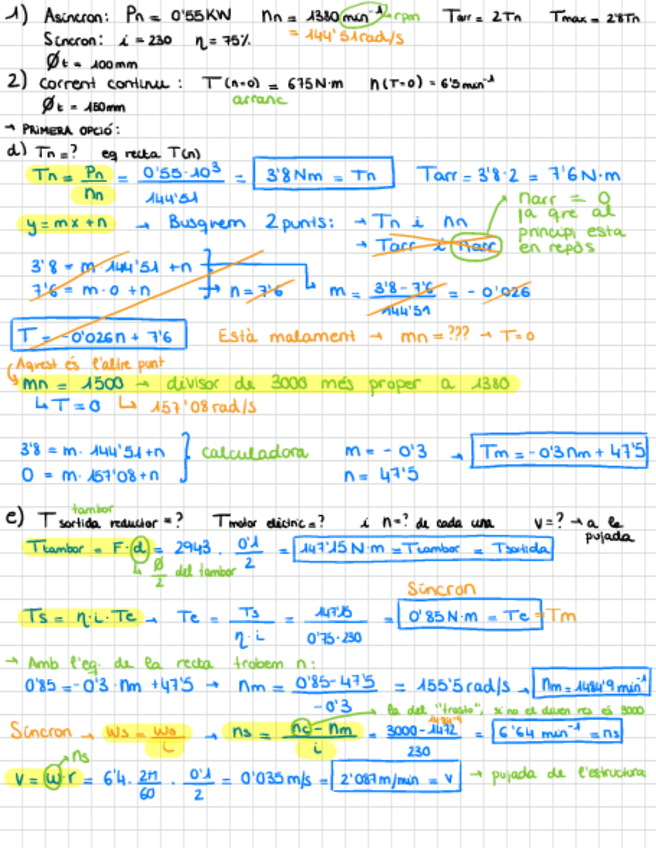 1) Asíncron: Pn = 0'55KW nn = 1380 min⁻¹ → rpm Tarr = 2Tn Tmax = 2'8Tn
= 144'51rad/s
Síncron: i = 230 η = 75%
Øt = 100mm
2) Corrent continu: T(n=0) = 675N·m n(T=0) = 6'5min⁻¹
arranc
Øt = 150mm
→ PRIMERA OPCIÓ:
d) Tn=? eq recta T(n)
Tn = Pn/nn = 0'55·10³/144'51 = 3'8Nm = Tn Tarr = 3'8·2 = 7'6N·m
narr = 0
ja que al
principi esta
en repòs
y=mx+n → Busquem 2punts: → Tn i nn
→ Tarr i narr
3'8 = m·144'51 + n
7'6 = m·0 + n → n=7'6 m = 3'8-7'6/144'51 = -0'026
T = -0'026n + 7'6 Està malament → mn = ??? → T=0
Aquest és l'altre punt
mn = 1500 → divisor de 3000 més proper a 1380
↳ T=0 ↳ 157'08rad/s
3'8 = m·144'51+n
0 = m·157'08+n
calculadora
m = -0'3
n = 47'5
→ Tm=-0'3nm+47'5
tambor
e) T sortida reductor=? Tmotor elèctric=? i n=? de cada una v=? → a la
pujada
Ttambor = F·d = 2943·0'1/2 = 147'15N·m = Ttambor = Tsortida
Ø/2 del tambor
Síncron
Ts = η·i·Te → Te = Ts/η·i = 147'15/0'75·230 = 0'85N·m = Te = Tm
→ Amb l'eq. de la recta trobem n:
0'85=-0'3·nm+47'5 → nm = 0'85-47'5/-0'3 = 155'5rad/s → nm=1484'9min⁻¹
la del "trasto", si no et diuen res és 3000
Síncron → ws = wo/i → ns = nc-nm/i = 3000-1472/230 = 6'64 min⁻¹ = ns
1484'9
ns
v=w·r = 6'4·2π/60·0'1/2 = 0'035m/s = 2'087m/min = v → pujada de l'estructura